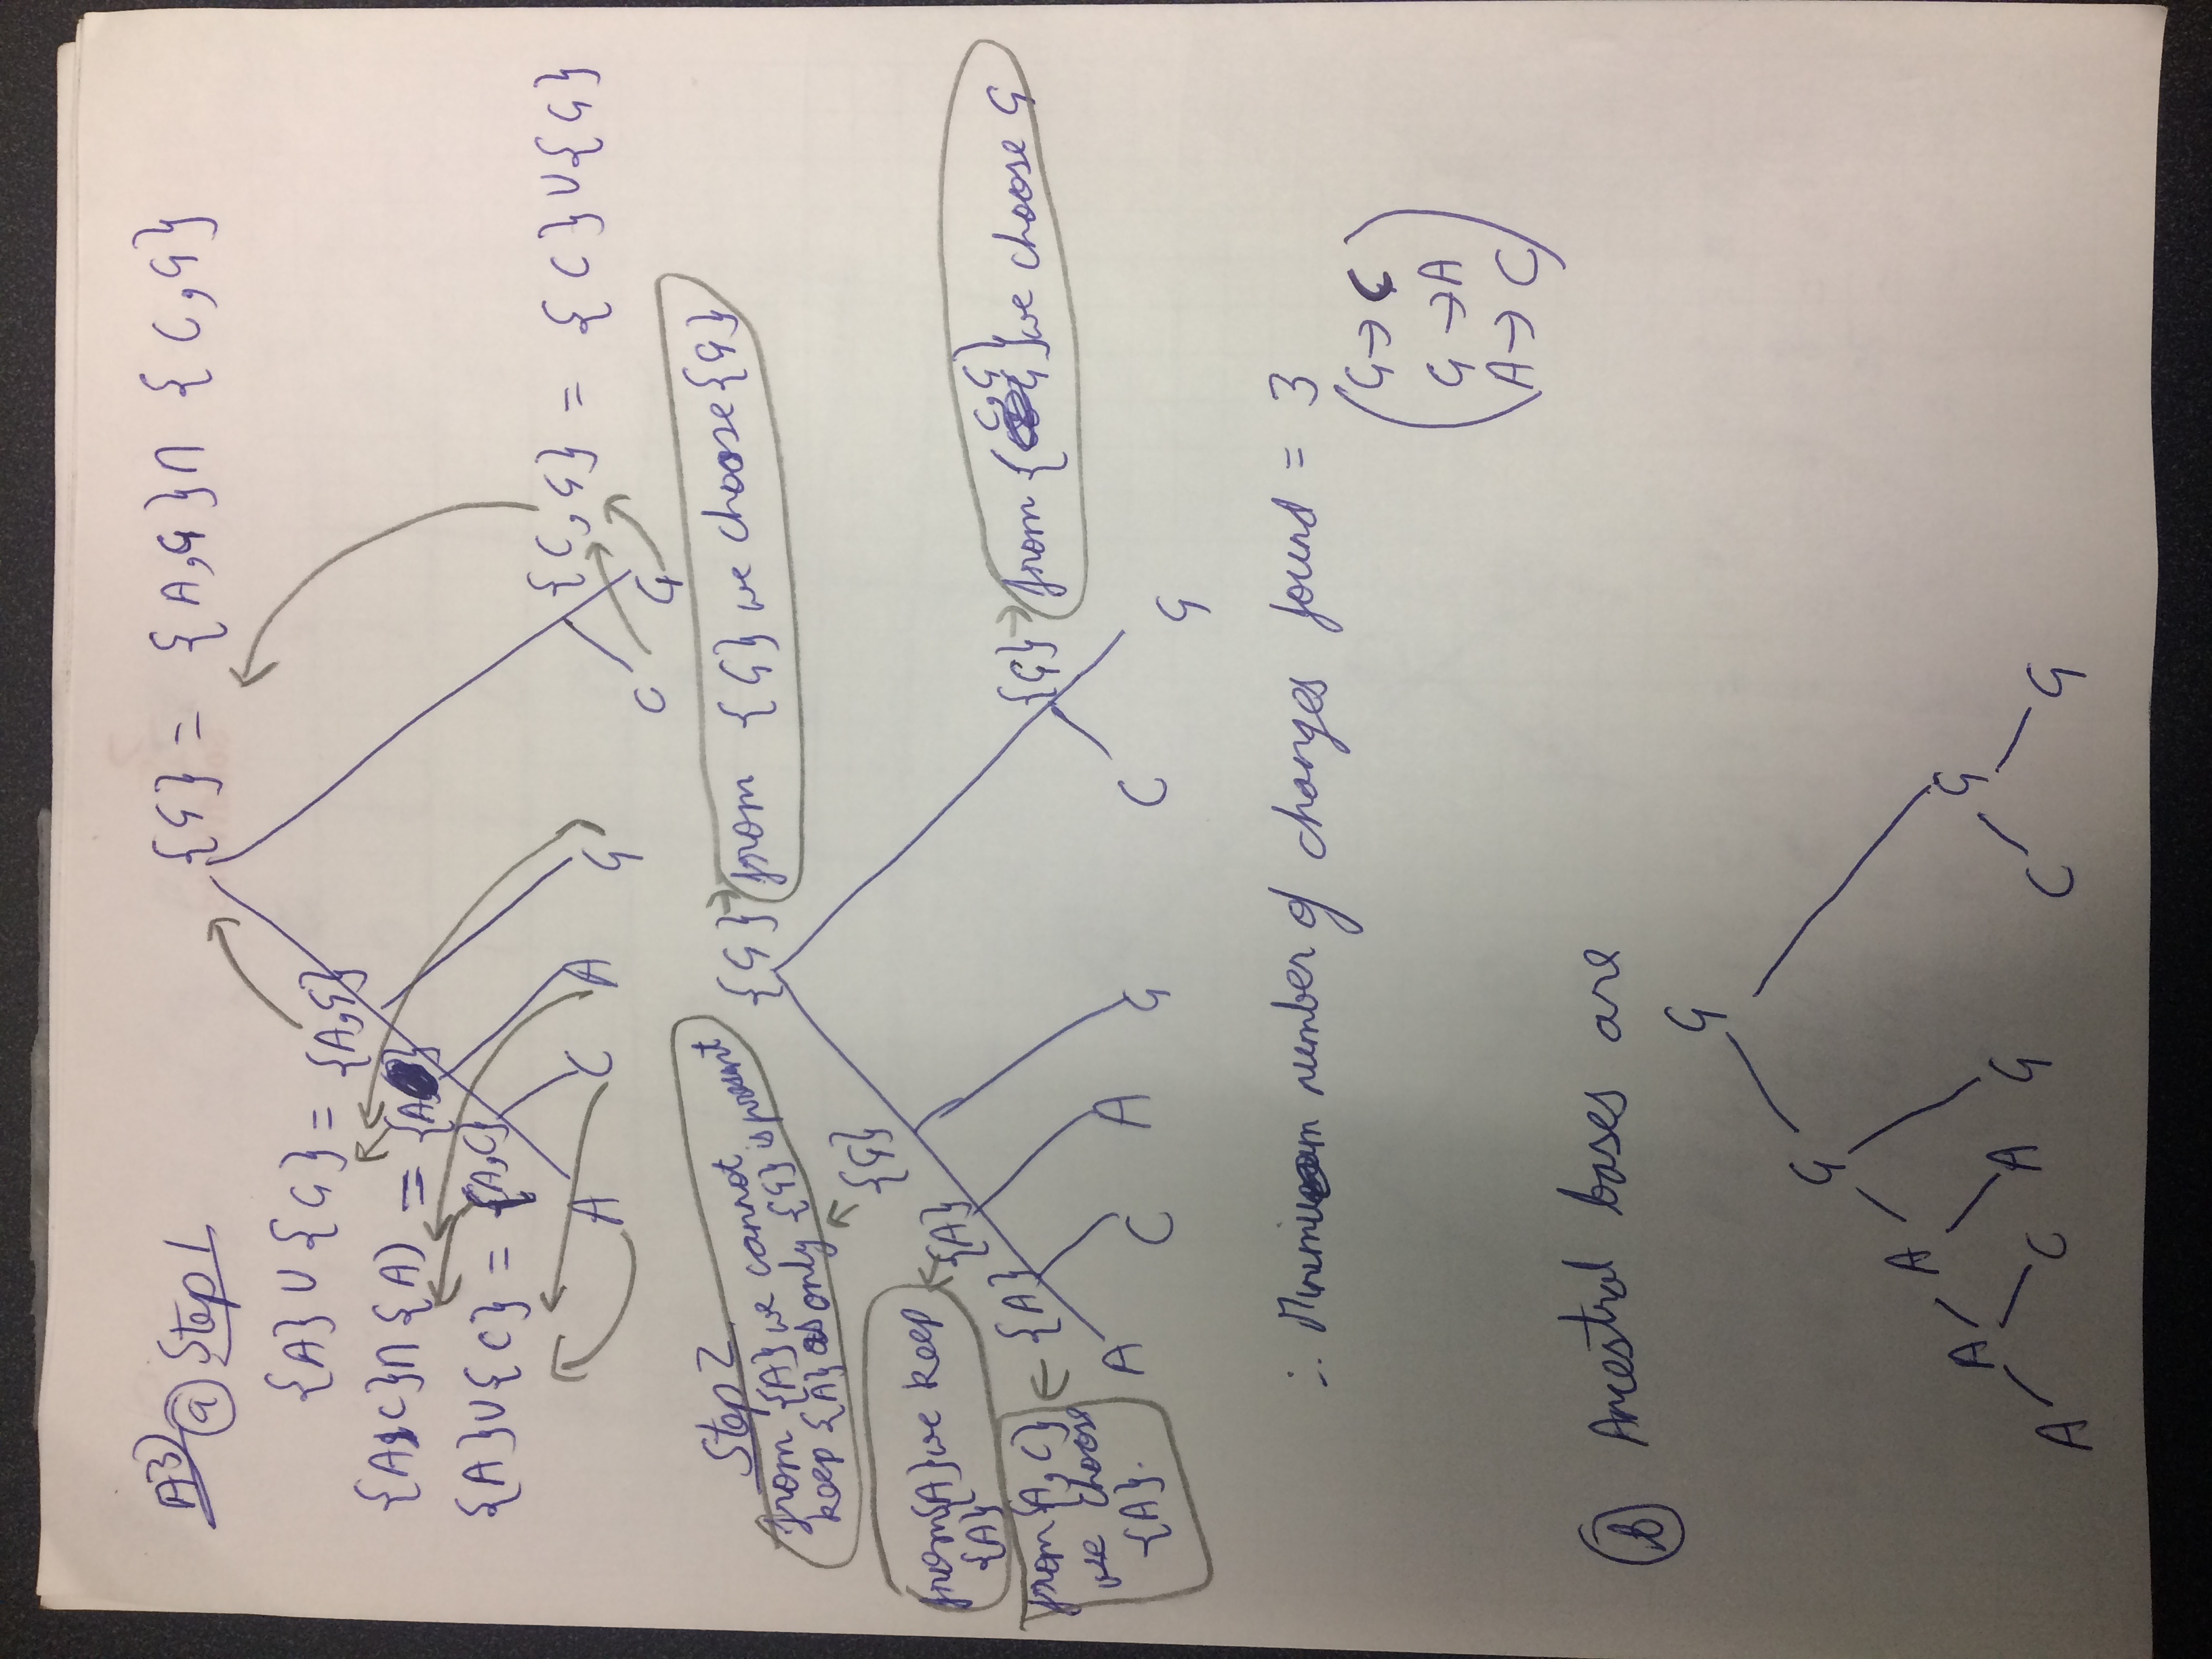 A3) a Step 1
{G} = {A,G} ∩ {C,G}
{A} ∪ {G} = {A,G}
{A,C} ∩ {A} = {A}
{A} ∪ {C} = {A,C}
{C,G} = {C} ∪ {G}
A C A G
C G
Step 2
from {A} we cannot
keep {A} as only {G} is present
{G} → from {G} we choose {G}
{G}
from {A} we keep
{A}
{A}
from {A,C}
we choose
{A}.
{A}
{G} → from {C,G} we choose G
A C A G
C G
∴ Minimum number of changes found = 3
(G → C
G → A
A → C)
b Ancestral bases are
G
G
A
A G
A C A G C G